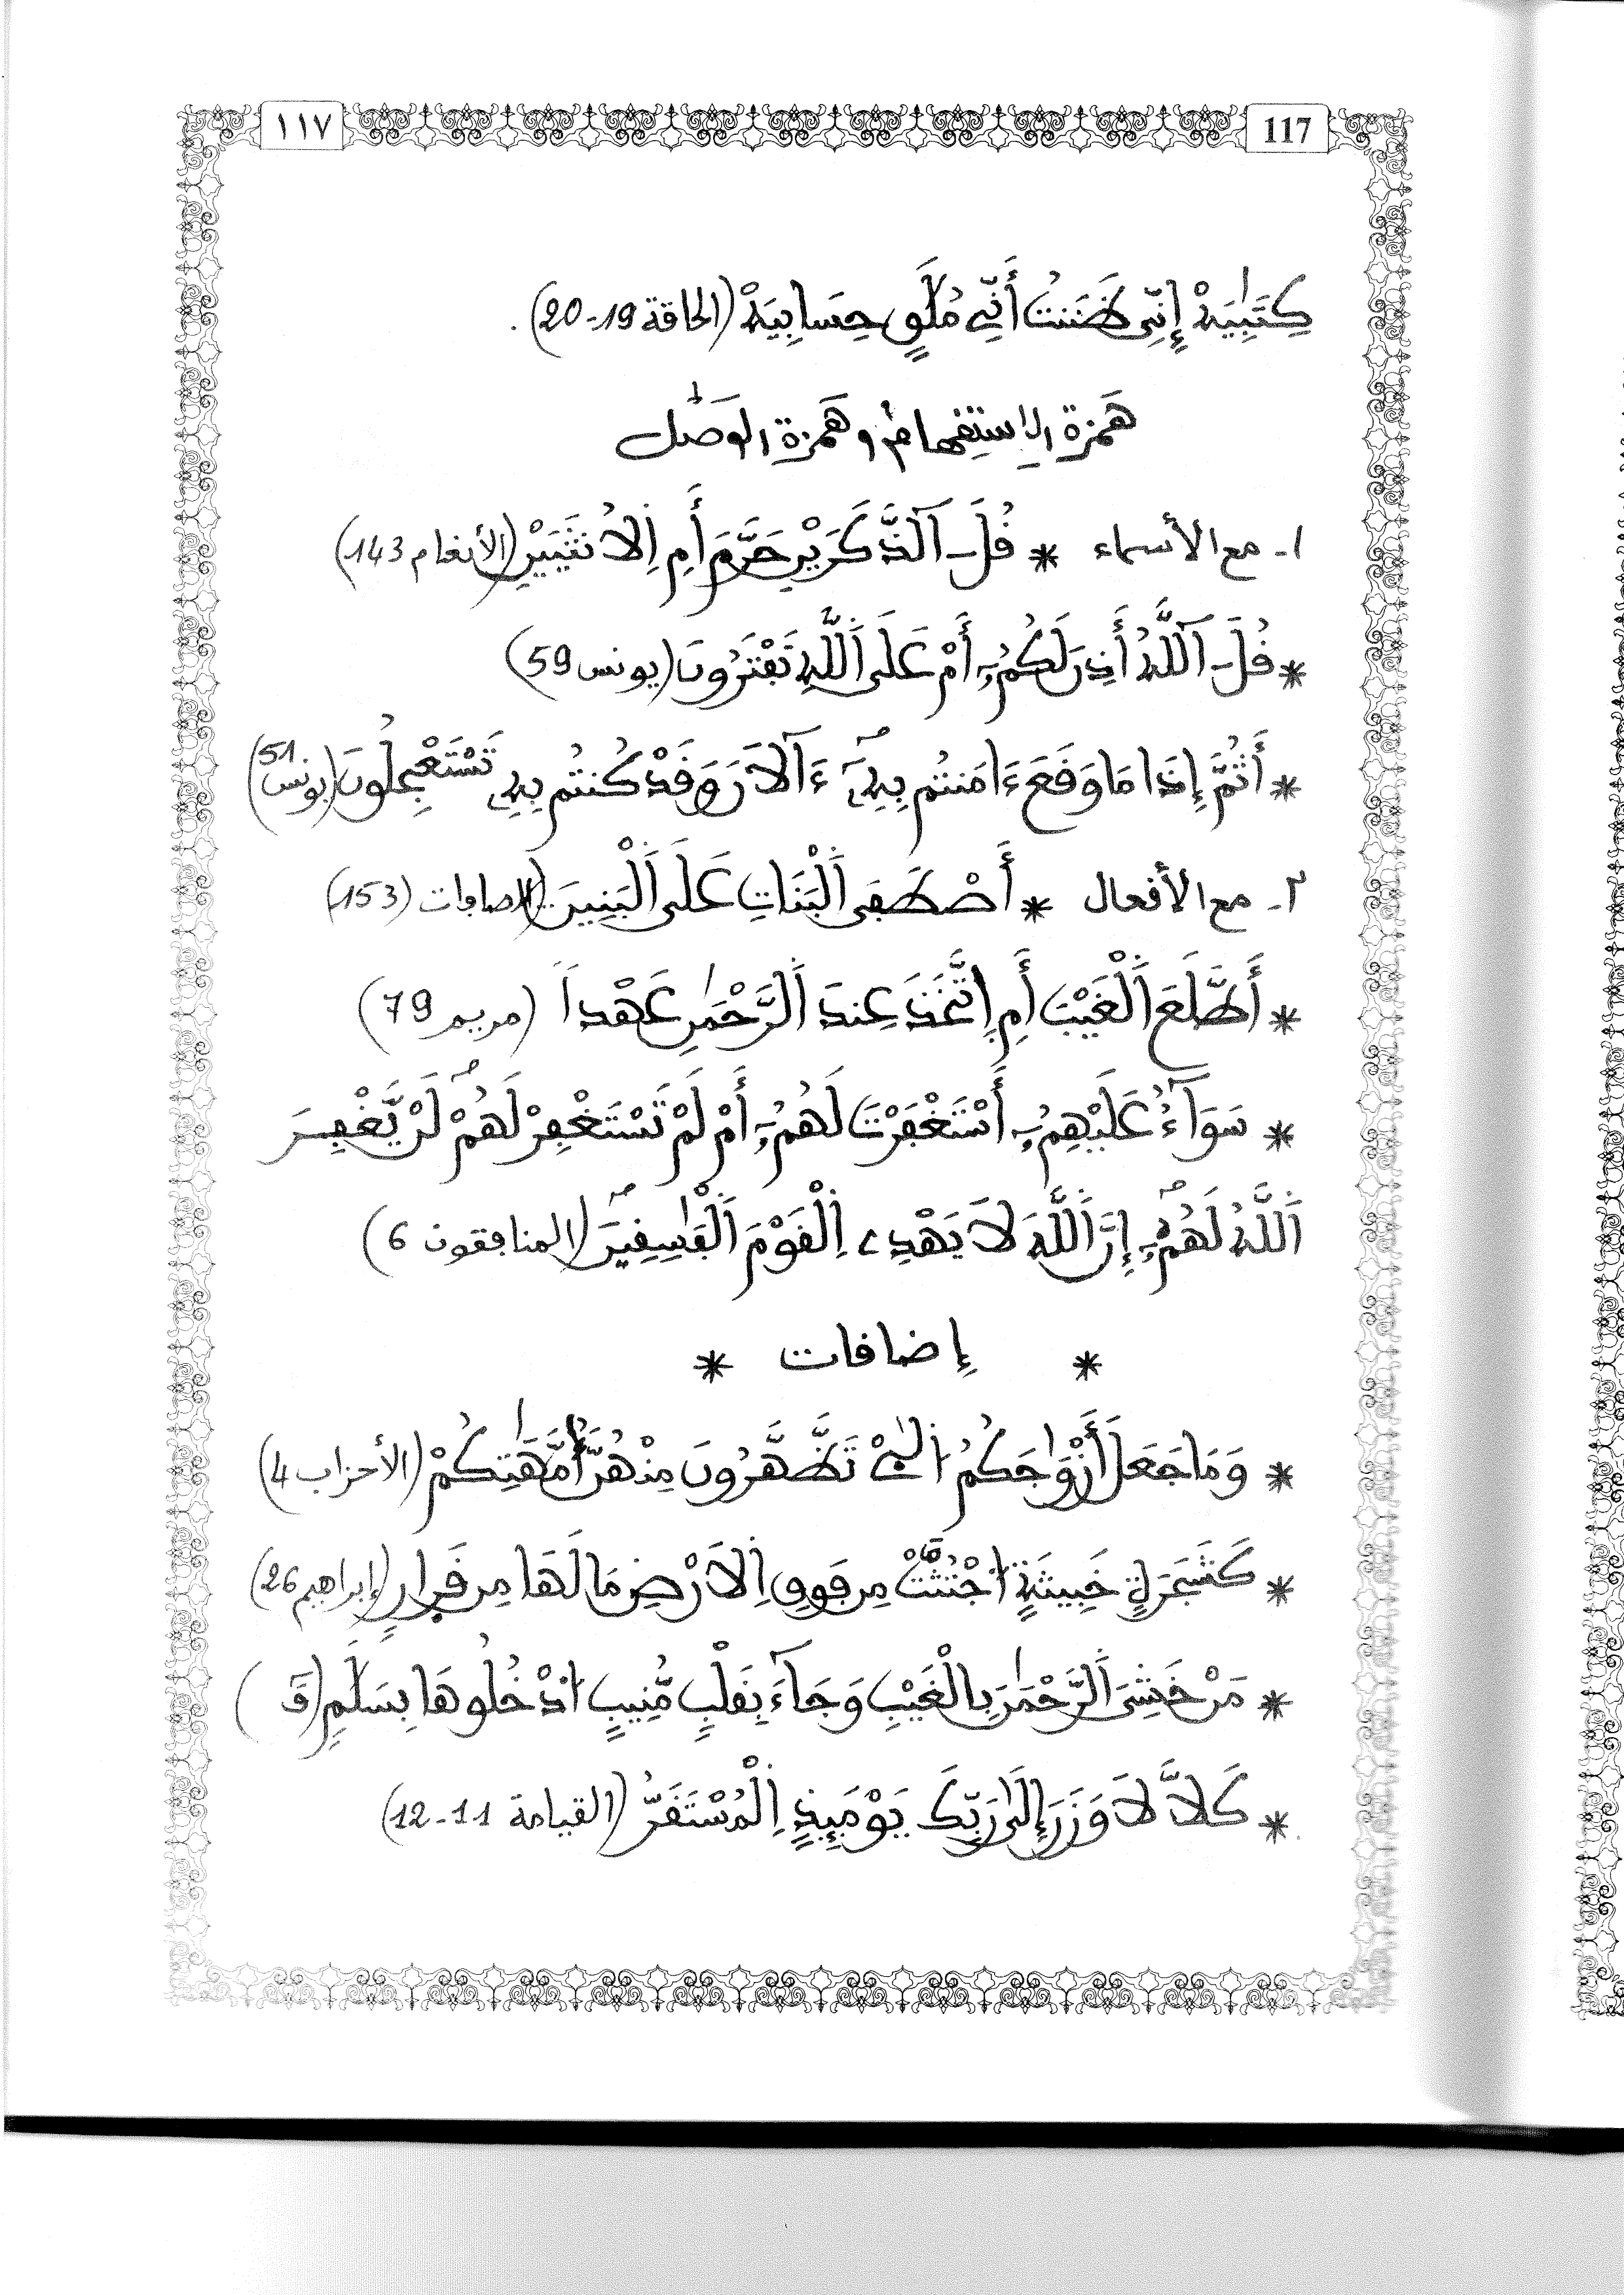 ١١٧ 117
كِتَٰبِيَهْ إِنِّي ظَنَنتُ أَنِّي مُلَٰقٍ حِسَابِيَهْ (الحاقة 19-20).
هَمزة الاِستِفهام وهَمزة الوَصل
١- مع الأسماء * قُلَ ـ آلذَّكَرَيْنِ حَرَّمَ أَمِ اِلُانثَيَيْنِ (الأنعام 143)
* قُلَ ـ آللَّهُ أَذِنَ لَكُمُۥٓ أَمْ عَلَى اَللَّهِ تَفْتَرُونَ (يونس 59)
* أَثُمَّ إِذَا مَا وَقَعَ ءَامَنتُم بِهِۦٓ ءَآلَانَ وَقَدْ كُنتُم بِهِۦ تَسْتَعْجِلُونَ (يونس 51)
٢- مع الأفعال * أَصْطَفَى اَلْبَنَاتِ عَلَى اَلْبَنِينَ (الصافات 153)
* أَطَّلَعَ اَلْغَيْبَ أَمِ اِتَّخَذَ عِندَ اَلرَّحْمَٰنِ عَهْداً (مريم 79)
* سَوَآءٌ عَلَيْهِمُۥٓ أَسْتَغْفَرْتَ لَهُمُۥٓ أَمْ لَمْ تَسْتَغْفِرْ لَهُمْ لَنْ يَّغْفِرَ
اَللَّهُ لَهُمُۥٓ إِنَّ اَللَّهَ لَا يَهْدِے اِلْقَوْمَ اَلْفَٰسِقِينَ (المنافقون 6)
* إضافات *
* وَمَا جَعَلَ أَزْوَٰجَكُمُ اُلَّٰٓـِٔے تَظَّهَّرُونَ مِنْهُنَّ أُمَّهَٰتِكُمْ (الأحزاب 4)
* كَشَجَرَةٍ خَبِيثَةٍ اُجْتُثَّتْ مِن فَوْقِ اِلَارْضِ مَا لَهَا مِن قَرارٍ (إبراهيم 26)
* مَنْ خَشِيَ اَلرَّحْمَٰنَ بِالْغَيْبِ وَجَآءَ بِقَلْبٍ مُّنِيبٍ اُدْخُلُوهَا بِسَلَٰمٍ (قَ )
* كَلَّا لَا وَزَرَ إِلَىٰ رَبِّكَ يَوْمَئِذٍ اِلْمُسْتَقَرُّ (القيامة 11-12)